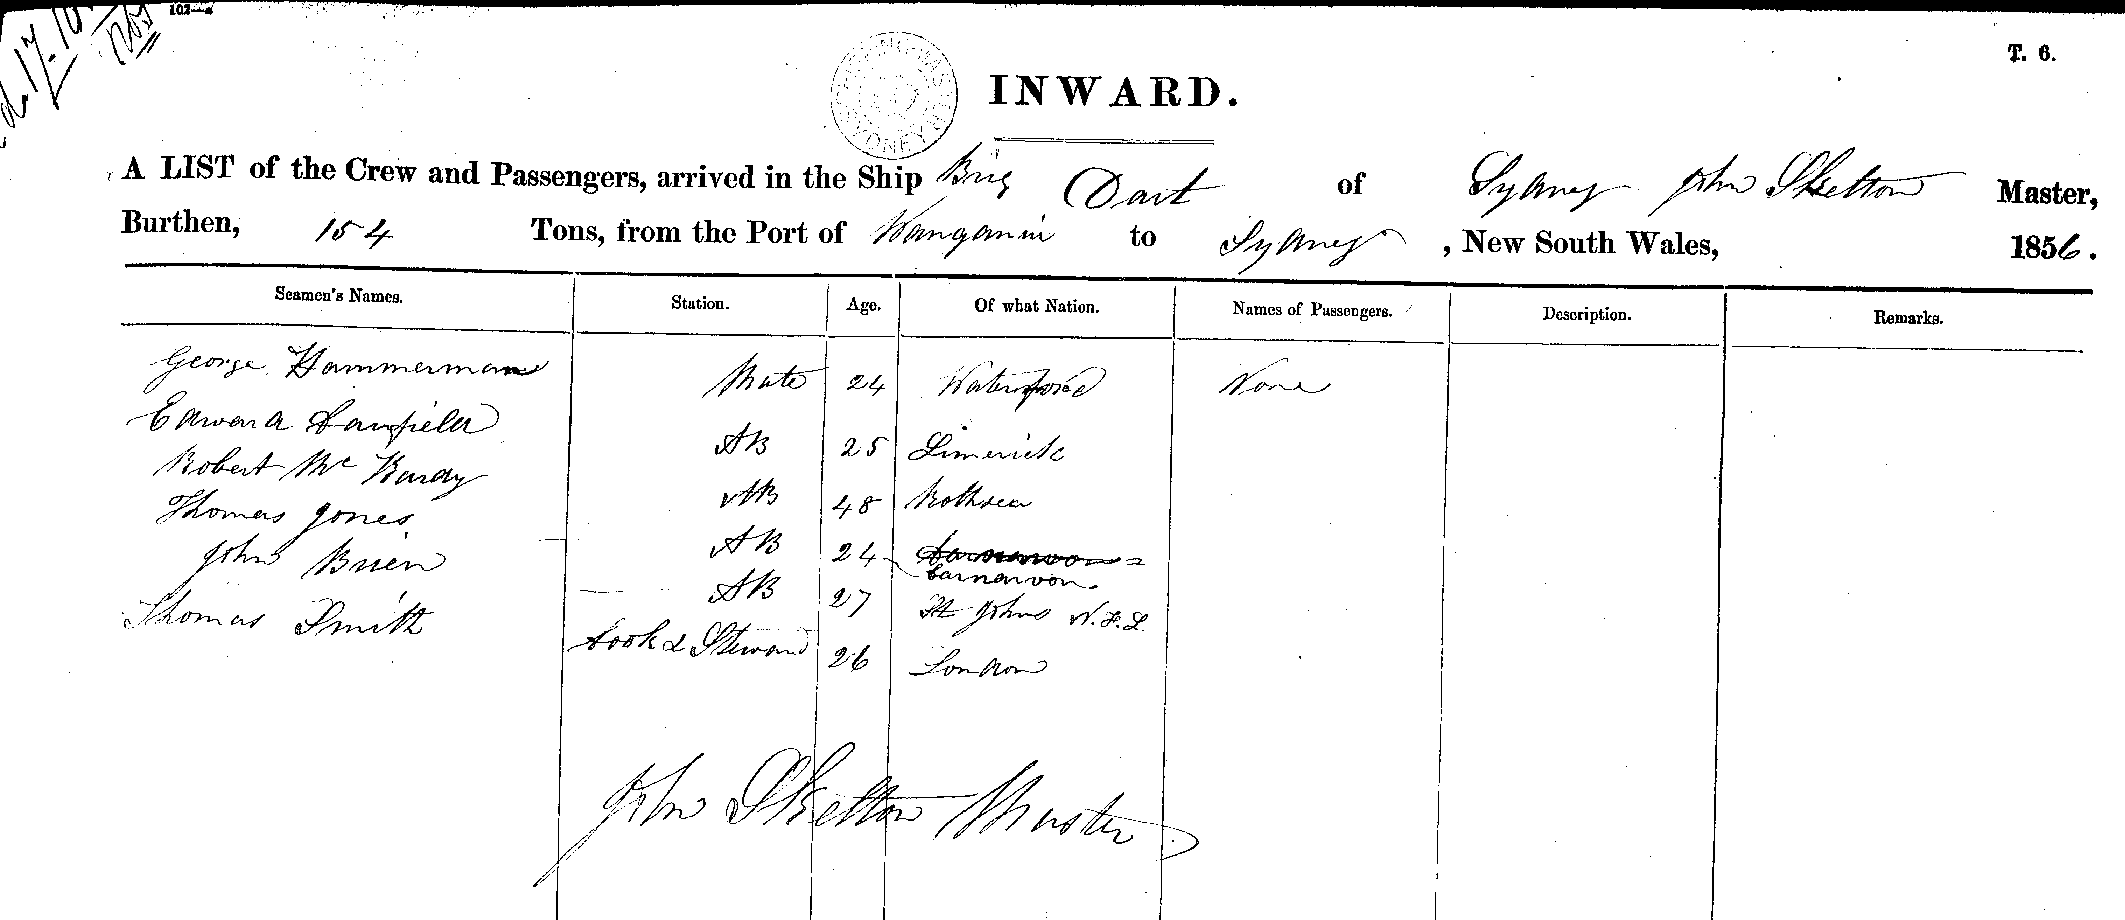 102—a
T. 6.
INWARD.
A LIST of the Crew and Passengers, arrived in the Ship Brig Dart of Sydney John Skelton Master,
Burthen, 154 Tons, from the Port of Wanganui to Sydney, New South Wales, 1856.
Seamen's Names. Station. Age. Of what Nation. Names of Passengers. Description. Remarks.
George Hammerman Mate 24 Waterford None
Edward AB 25 Limerick
Robert Mc AB 48 Rothsea
Thomas Jones AB 24 Carnarvon
Carnarvon
John Brien AB 27 St Johns N.F.L.
Thomas Smith Cook & Steward 26 London
John Skelton Master